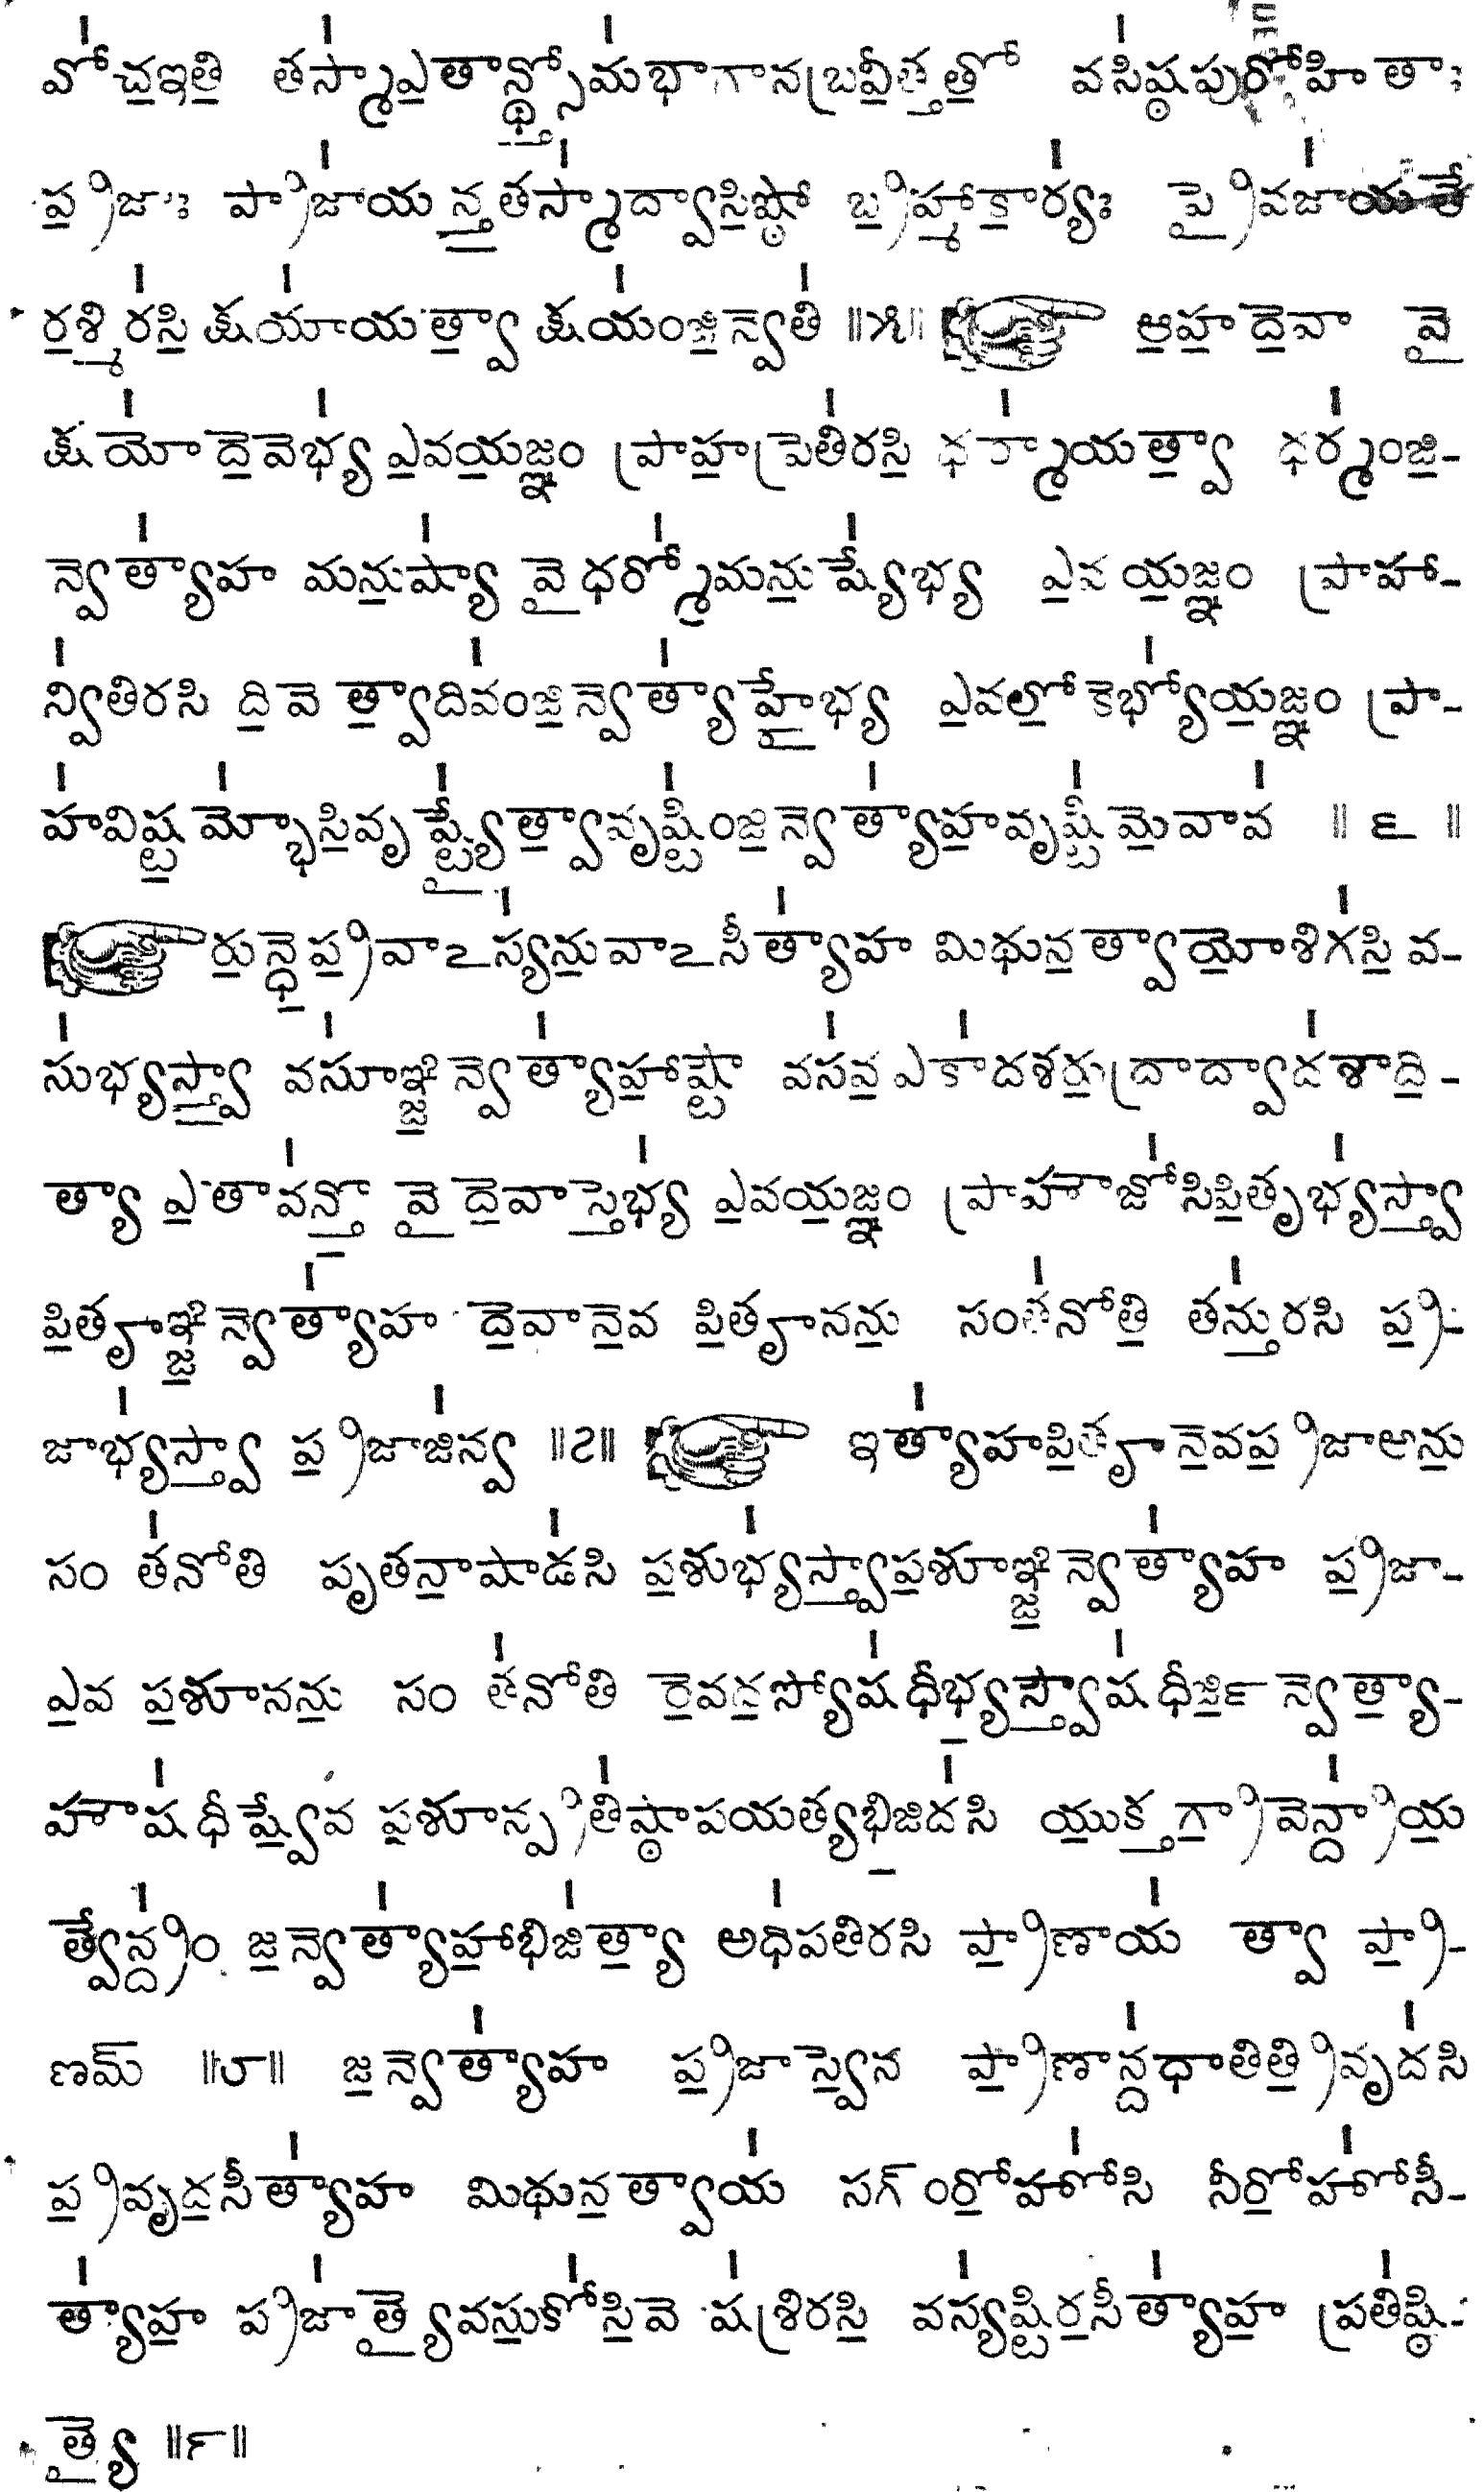 వో॑చ॒ఇతి॒ తస్మా॑ఎ॒తాన్త్స్తోమ॑భాగానబ్రవీ॒త్తతో॒ వసి॑ష్ఠపురోహితాః
ప్ర॒జాః ప్రాజా॑యన్త॒తస్మా॑ద్వాసి॒ష్ఠో బ్ర॒హ్మాకా॒ర్యః॑ ప్రై॒వజా॑యతే
ర॒శ్మిర॑సి॒ క్షయా॑యత్వా॒ క్షయం॑జి॒న్వేతి॑ ॥౫॥ ☞ ఆ॒హ॒దే॒వా వై॒
క్షయో॑ దే॒వేభ్య॑ ఎ॒వయ॒జ్ఞం ప్రాహ॒ప్రేతి॑రసి॒ ధర్మా॑యత్వా॒ ధర్మం॑జి॒-
న్వేత్యా॑హ మను॒ష్యా॑ వై॒ధర్మో॑మను॒ష్యే॑భ్య ఎ॒వ య॒జ్ఞం ప్రాహా-
న్వి॑తిరసి ది॒వే త్వా॒దివం॑జి॒న్వేత్యా॑హై॒భ్య ఎ॒వలో॒కేభ్యో॑య॒జ్ఞం ప్రా-
హ॑విష్ట॒మ్భో॑సి॒వృష్ట్యై॑త్వా॒వృష్టిం॑జి॒న్వేత్యా॑హ॒వృష్టి॑మే॒వావ॑ ॥ ౬ ॥
☞ రు॒న్ధే॒ప్ర॒వాఽస్య॑ను॒వాఽసీత్యా॑హ మిథున॒త్వాయో॒శిగ॑సి॒ వ-
సు॑భ్యస్త్వా॒ వసూ॑ఞ్జి॒న్వేత్యా॑హా॒ష్టౌ వస॑వ॒ ఎకా॑దశరు॒ద్రాద్వాద॑శాది॒-
త్యా ఎ॒తావ॑న్తో॒ వై॒ దే॒వాస్తేభ్య॑ ఎ॒వయ॒జ్ఞం ప్రాహౌజో॑సిపి॒తృభ్య॑స్త్వా॒
పి॒తౄఞ్జి॒న్వేత్యా॑హ దే॒వానే॒వ పి॒తౄనను॒ సంత॑నోతి॒ తన్తు॑రసి ప్ర॒-
జాభ్య॑స్త్వా॒ ప్ర॒జాజి॑న్వ ॥౭॥ ☞ ఇత్యా॑హపి॒తౄనే॒వప్ర॒జాఅను॒
సం త॑నోతి పృతనా॒షాడ॑సి ప॒శుభ్య॑స్త్వా॒ప॒శూఞ్జి॒న్వేత్యా॑హ ప్ర॒జా-
ఎ॒వ ప॒శూనను॒ సం త॑నోతి రే॒వద॒స్యోష॑ధీభ్య॒స్త్వౌష॑ధీర్జి॒న్వేత్యా॒-
హౌష॑ధీష్వే॒వ ప॒శూన్ప్రతి॑ష్ఠాపయత్యభి॒జిద॑సి యు॒క్తగ్రా॒వేన్ద్రా॑య॒
త్వేన్ద్రం॑ జి॒న్వేత్యా॑హా॒భిజి॑త్యా॒ అధి॑పతిరసి ప్రా॒ణాయ॑ త్వా ప్రా॒-
ణమ్ ॥౮॥ జి॒న్వేత్యా॑హ ప్ర॒జాస్వే॒వ ప్రా॒ణాన్ద॑ధాతిత్రి॒వృద॑సి
ప్ర॒వృద॒సీత్యా॑హ మిథున॒త్వాయ॑ సగ్ంరో॒హో॑సి నీరో॒హో॑సీ-
త్యా॑హ॒ ప్రజా॑త్యై॒వసు॒కో॑సి॒వే ష॑శ్రిరసి॒ వస్య॑ష్టిర॒సీత్యా॑హ॒ ప్రతి॑ష్ఠి-
త్యై॒ ॥౯॥